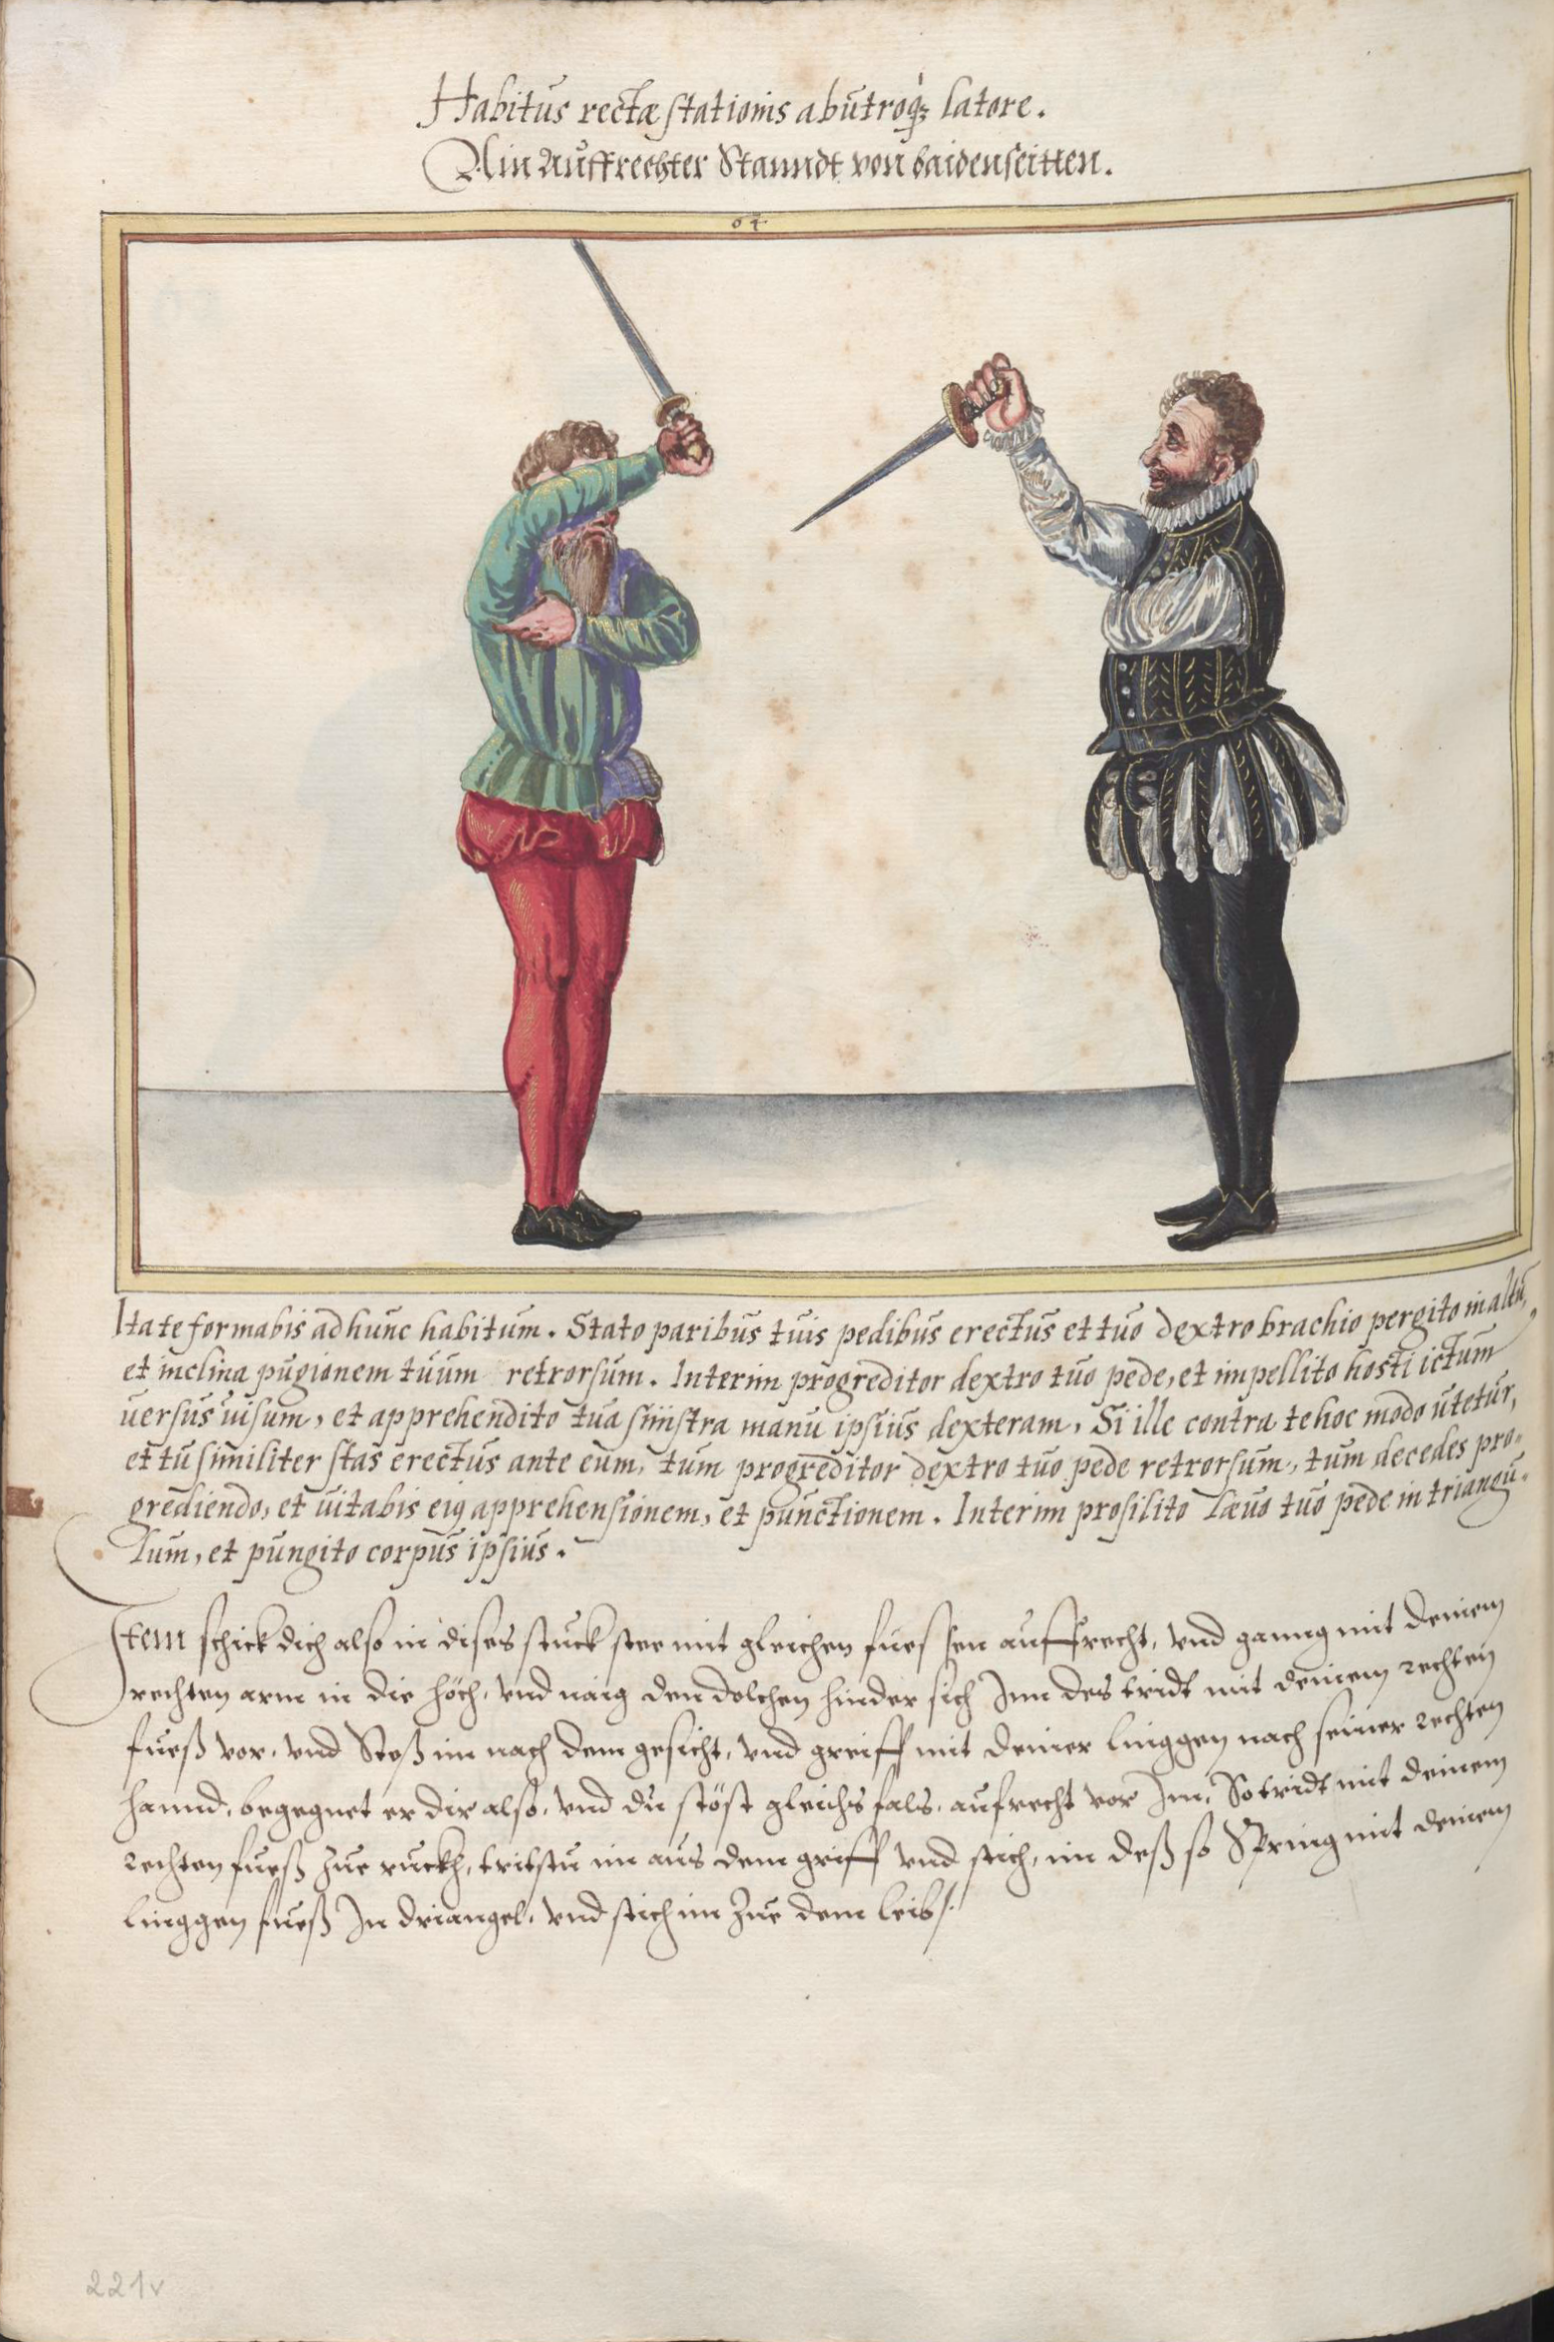 Habitus rectæ stationis ab utroqꝫ latore.
Ain Auffrechter Stanndt von baidenseitten.
64
Ita te formabis ad hunc habitum. Stato paribus tuis pedibus erectus et tuo dextro brachio pergito in altū,
et inclina pugionem tuum retrorsum. Interim progreditor dextro tuo pede, et impellito hosti ictum
uersus uisum, et apprehendito tua sinistra manu ipsius dexteram, Si ille contra te hoc modo utetur,
et tu similiter stas erectus ante eum, tum progreditor dextro tuo pede retrorsum, tum decedes pro-
grediendo, et uitabis eiꝰ apprehensionem, et punctionem. Interim prosilito læuo tuo pede in triangu-
lum, et pungito corpus ipsius.
Item schick dich also in dises stuck stee mit gleichen fuessen auffrecht, vnd ganng mit deinem
rechten arm in die höch, vnd naig den dolchen hinder sich Inn des tridt mit deinem rechten
fueß vor, vnd Stoß im nach dem gesicht, vnd greiff mit deiner linggen nach seiner rechten
hannd, begegnet er dir also, vnd du stöst gleichs fals, aufrecht vor Im, So tridt mit deinem
rechten fueß zue ruckh, tritstu im aus dem griff vnd stich, in deß so Spring mit deinem
linggen fueß In driangel, vnd stich im zue dem leib
221v